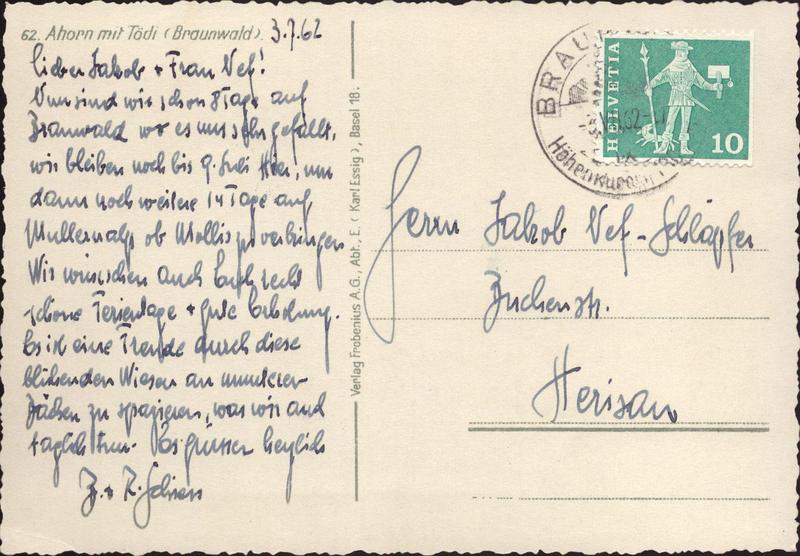 62. Ahorn mit Tödi (Braunwald). 3.7.62
Lieber Jakob + Frau Nef!
Nun sind wir schon 8 Tage auf
Braunwald wo es uns sehr gefällt,
wir bleiben noch bis 9. Juli hier, um
dann noch weitere 14 Tage auf
Mullernalp ob Mollis zu verbringen
Wir wünschen auch Euch recht
schöne Ferientage + gute Erholung.
Es ist eine Freude durch diese
blühenden Wiesen an munteren
Bächen zu spazieren, was wir auch
täglich tun. Es grüssen herzlich
B. + R. Schiess
Verlag Frobenius A.G., Abt., E. (Karl Essig), Basel 18.
BRAU
VII.62-17
Höhenkurort
HELVETIA
10
Herrn Jakob Nef-Schläpfer
Buchenstr.
Herisau